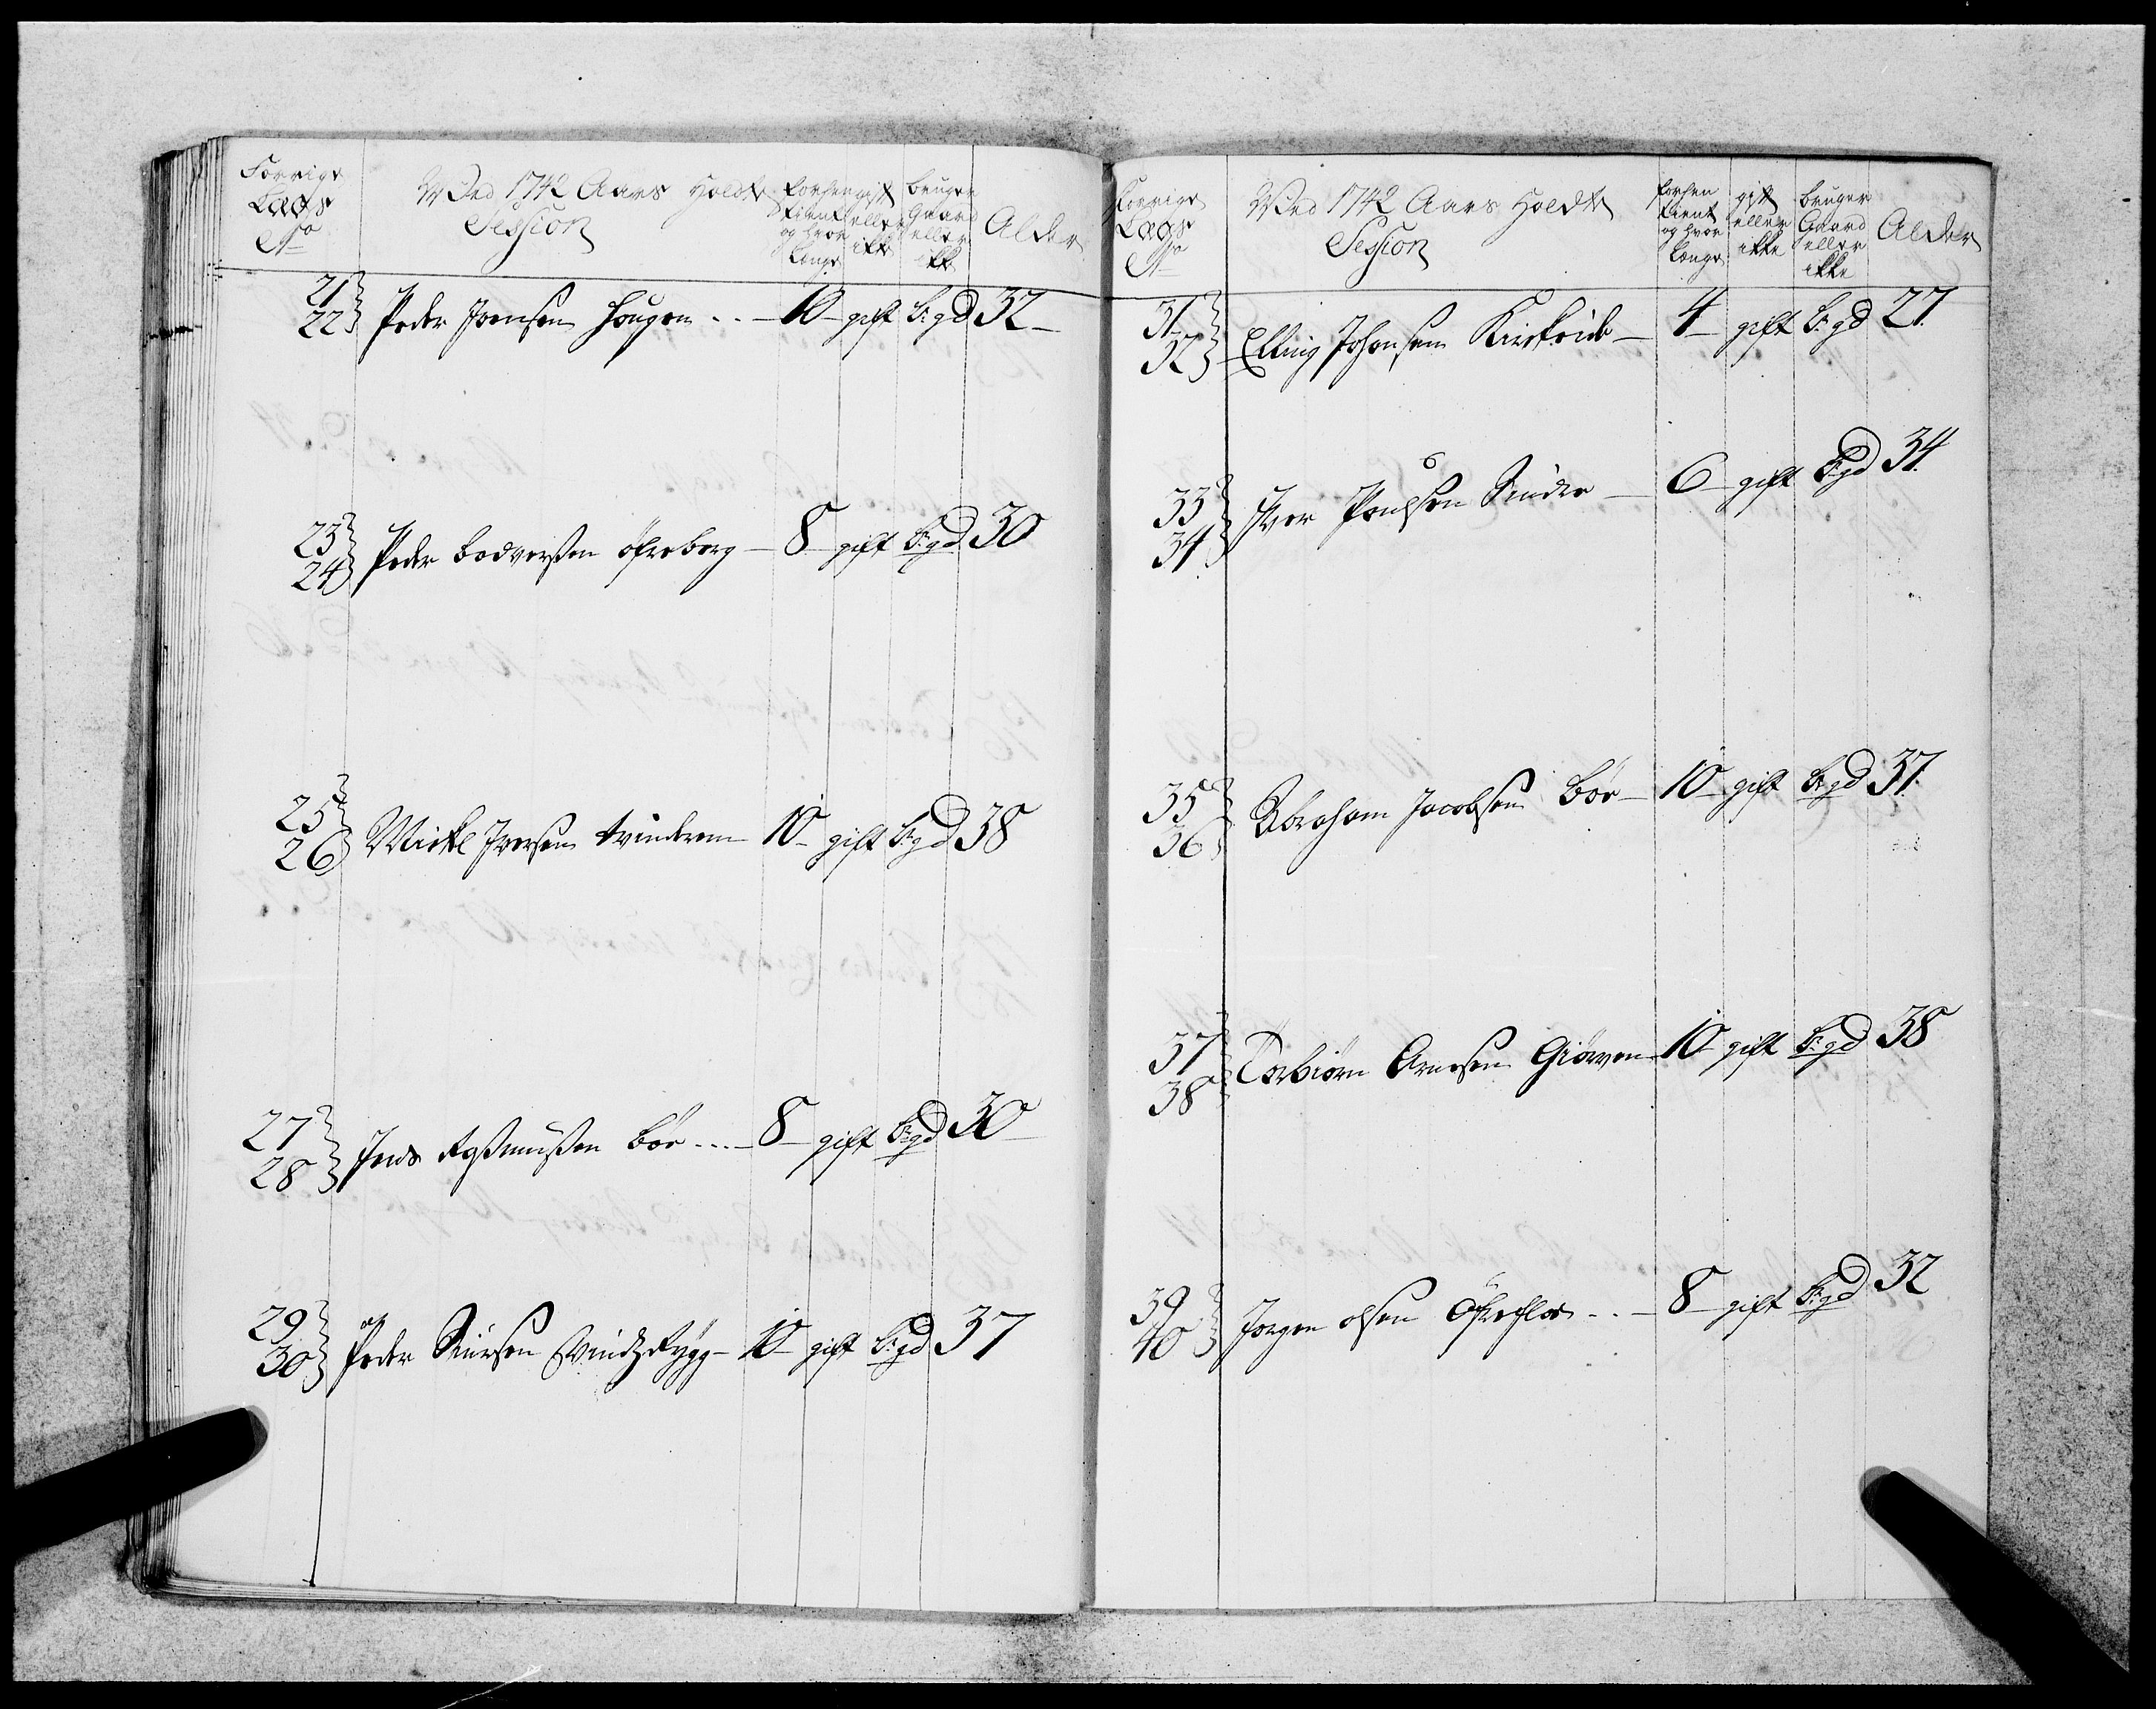 Forrige
Lægs
No
Ved 1742 Aars Holdte
Session
forhen
tient
og hvor
længe
gift
eller
ikke
bruger
Gaard
eller
ikke
Alder
21
22 Peder Joensen Haugen - - - 10 - gift b: gd 32 -
23
24 Peder Bodversen öfreborg - 8 - gift b: gd 30
25
26 Mickel Iversen tvinderem 10 - gift b: gd 38
27
28 Jens Rasmussen Bör - - - 8 - gift b: gd 30
29
30 Peder Siursen - 10 - gift b: gd 37
Forrige
Lægs
No
Ved 1742 Aars Holdte
Session
forhen
tient
og hvor
længe
gift
eller
ikke
bruger
Gaard
eller
ikke
Alder
31
32 Elling Johansen Kirkeide - 4 - gift b: gd 27.
33
34 Iver Poulsen Sunde - 6 - gift b: gd 34.
35
36 Abraham Jacobsen Bör - 10 - gift b: gd 37.
37
38 Torbiörn Arnesen Giörven - 10 - gift b: gd 38
39
40 Jörgen olsen öfrefloe - - - 8 - gift b: gd 32